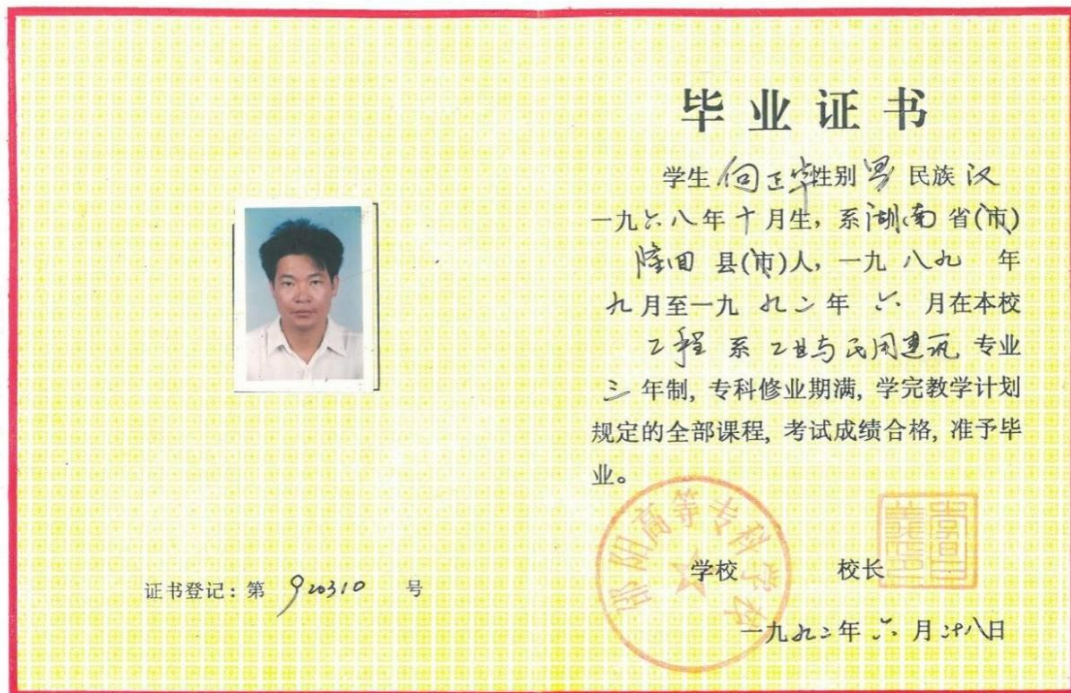 毕业证书
学生 向正华 性别 男 民族 汉
一九六八年十月生，系湖南省(市)
隆回 县(市)人，一九 八九 年
九月至一九 九二 年 六 月在本校
工程 系 工业与民用建筑 专业
三 年制, 专科修业期满, 学完教学计划
规定的全部课程, 考试成绩合格, 准予毕
业。
邵阳高等专科学校
学校 校长
证书登记：第 920310 号
一九九二年 六 月二十八日